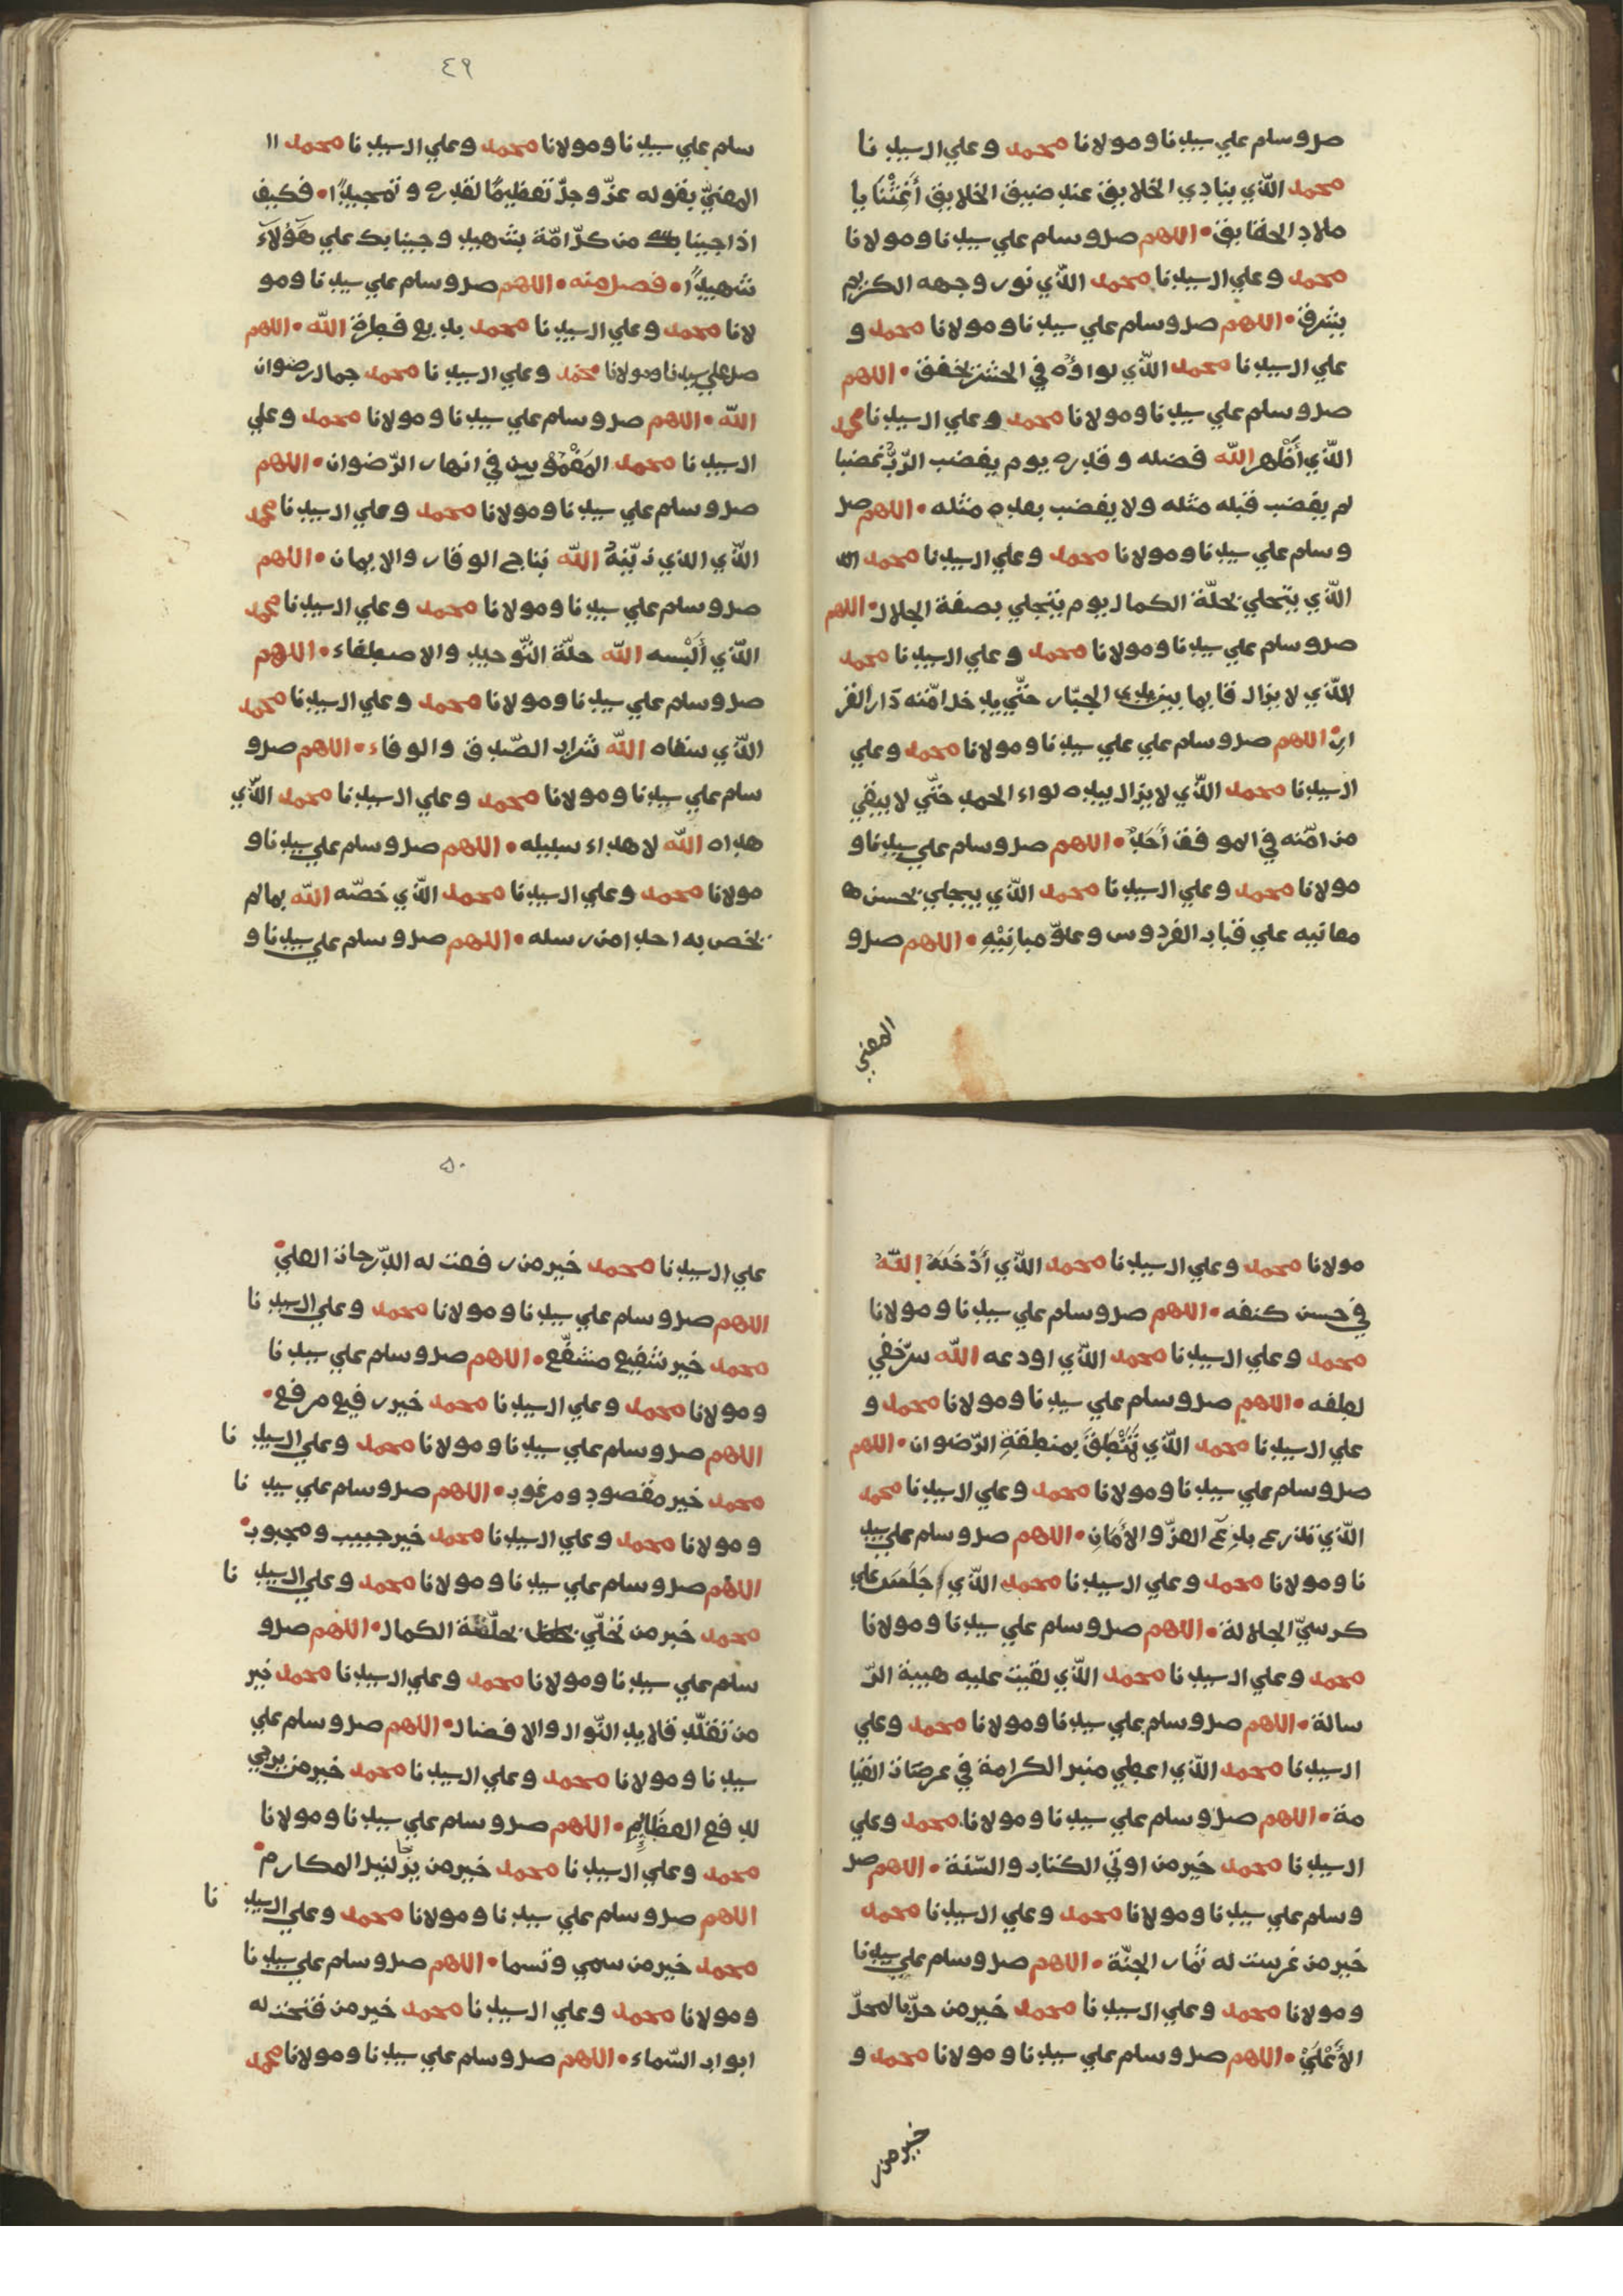 صل وسلم علي سيدنا ومولانا محمد وعلي ال سيدنا
محمد الذي ينادي الخلايق عند ضيق الخلايق أغثنا يا
ملاد الحقايق • اللهم صل وسلم علي سيدنا ومولانا
محمد وعلي ال سيدنا محمد الذي نور وجهه الكريم
يشرق • اللهم صل وسلم علي سيدنا ومولانا محمد و
علي ال سيدنا محمد الذي لواؤه في الحشر يخفق • اللهم
صل وسلم علي سيدنا ومولانا محمد وعلي ال سيدنا محمد
الذي أظهر الله فضله وقدره يوم يغضب الرب غضبا
لم يغضب قبله مثله ولا يغضب بعده مثله • اللهم صل
وسلم علي سيدنا ومولانا محمد وعلي ال سيدنا محمد
الذي يتحلي بحلة الكمال يوم يتجلي بصفة الجلال • اللهم
صل وسلم علي سيدنا ومولانا محمد وعلي ال سيدنا محمد
الذي لا يزال قايما بين يدي الجبار حتي يدخل امته دار القر
ار • اللهم صل وسلم علي علي سيدنا ومولانا محمد وعلي
ال سيدنا محمد الذي لا يزال بيده لواء الحمد حتي لا يبقي
من امته في الموقف أحد • اللهم صل وسلم علي سيدنا و
مولانا محمد وعلي ال سيدنا محمد الذي يبجلي بحسن
معانيه علي قباب الفردوس وعلو مبانيه • اللهم صل و
المغني
٤٩
سلم علي سيدنا ومولانا محمد وعلي ال سيدنا محمد ال
المغني بقوله عز وجل تعظيما لقدره وتمجيدا • فكيف
اذا جينا من كل امة بشهيد وجينا بك علي هؤلاء
شهيدا • فصل منه • اللهم صل وسلم علي سيدنا ومو
لانا محمد وعلي ال سيدنا محمد بديع فطرة الله • اللهم
صل علي سيدنا ومولانا محمد وعلي ال سيدنا محمد جمال رضوان
الله • اللهم صل وسلم علي سيدنا ومولانا محمد وعلي
ال سيدنا محمد المغموسين في انهار الرضوان • اللهم
صل وسلم علي سيدنا ومولانا محمد وعلي ال سيدنا محمد
الذي الذي زينه الله بتاج الوقار والايمان • اللهم
صل وسلم علي سيدنا ومولانا محمد وعلي ال سيدنا محمد
الذي ألبسه الله حلة التوحيد والاصطفاء • اللهم
صل وسلم علي سيدنا ومولانا محمد وعلي ال سيدنا محمد
الذي سقاه الله شراب الصدق والوفاء • اللهم صل و
سلم علي سيدنا ومولانا محمد وعلي ال سيدنا محمد الذي
هداه الله لاهداء سبيله • اللهم صل وسلم علي سيدنا و
مولانا محمد وعلي ال سيدنا محمد الذي خصه الله بما لم
يخص به احدا من رسله • اللهم صل وسلم علي سيدنا و
مولانا محمد وعلي ال سيدنا محمد الذي أدخله الله
في حسن كنفه • اللهم صل وسلم علي سيدنا ومولانا
محمد وعلي ال سيدنا محمد الذي اودعه الله سر خفي
لطفه • اللهم صل وسلم علي سيدنا ومولانا محمد و
علي ال سيدنا محمد الذي تنطق بمنطقة الرضوان • اللهم
صل وسلم علي سيدنا ومولانا محمد وعلي ال سيدنا محمد
الذي تدرع بدرع العز والأمان • اللهم صل وسلم علي سيد
نا ومولانا محمد وعلي ال سيدنا محمد الذي جلس علي
كرسي الجلالة • اللهم صل وسلم علي سيدنا ومولانا
محمد وعلي ال سيدنا محمد الذي لقيت عليه هيبة الر
سالة • اللهم صل وسلم علي سيدنا ومولانا محمد وعلي
ال سيدنا محمد الذي اعطي منبر الكرامة في عرصات القيا
مة • اللهم صل وسلم علي سيدنا ومولانا محمد وعلي
ال سيدنا محمد خير من اوتي الكتاب والسنة • اللهم صل
وسلم علي سيدنا ومولانا محمد وعلي ال سيدنا محمد
خير من غرست له ثمار الجنة • اللهم صل وسلم علي سيدنا
ومولانا محمد وعلي ال سيدنا محمد خير من حل بالمحل
الأعلي • اللهم صل وسلم علي سيدنا ومولانا محمد و
خير من ر
٥٠
علي ال سيدنا محمد خير من رفعت له الدرجات العلي •
اللهم صل وسلم علي سيدنا ومولانا محمد وعلي ال سيد نا
محمد خير شفيع مشفع • اللهم صل وسلم علي سيدنا
ومولانا محمد وعلي ال سيدنا محمد خير رفيع مرفع •
اللهم صل وسلم علي سيدنا ومولانا محمد وعلي ال سيد نا
محمد خير مقصود ومرغوب • اللهم صل وسلم علي سيد نا
ومولانا محمد وعلي ال سيدنا محمد خير حبيب ومحبوب •
اللهم صل وسلم علي سيدنا ومولانا محمد وعلي ال سيد نا
محمد خير من تحلي بحلة الكمال • اللهم صل و
سلم علي سيدنا ومولانا محمد وعلي ال سيدنا محمد خير
من تقلد قلايد النوال والافضال • اللهم صل وسلم علي
سيدنا ومولانا محمد وعلي ال سيدنا محمد خير من يرجي
لدفع العظايم • اللهم صل وسلم علي سيدنا ومولانا
محمد وعلي ال سيدنا محمد خير من يرجا لنيل المكارم •
اللهم صل وسلم علي سيدنا ومولانا محمد وعلي ال سيد نا
محمد خير من سمي وتسما • اللهم صل وسلم علي سيدنا
ومولانا محمد وعلي ال سيدنا محمد خير من فتحت له
ابواب السماء • اللهم صل وسلم علي سيدنا ومولانا محمد